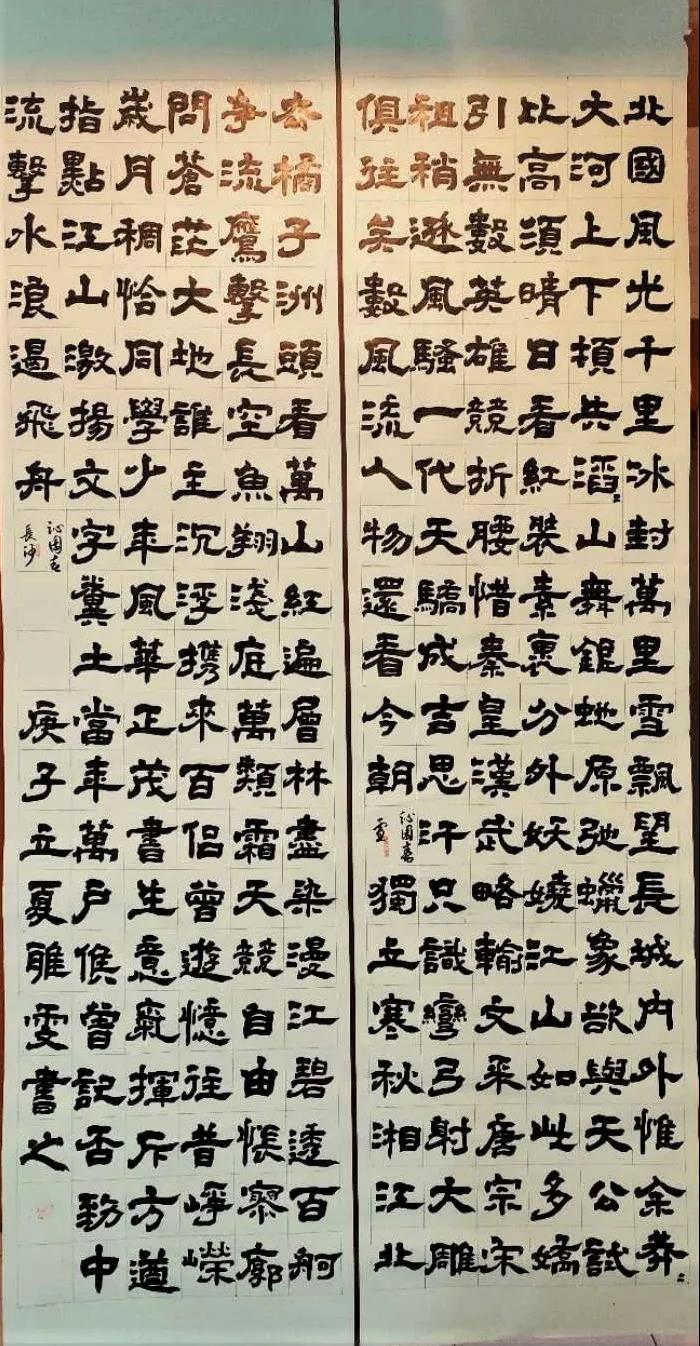 北國風光千里冰封萬里雪飄望長城内外惟余莽〻
大河上下頓共滔〻山舞銀蛇原弛蠟象欲與天公試
比高須晴日看紅裝素裹分外妖嬈江山如此多嬌
引無數英雄競折腰惜秦皇漢武略輸文采唐宗宋
祖稍遜風騷一代天驕成吉思汗只識彎弓射大雕
俱往矣數風流人物還看今朝
沁園春
雪
獨立寒秋湘江北
去橘子洲頭看萬山紅遍層林盡染漫江碧透百舸
争流鷹擊長空魚翔淺底萬類霜天競自由悵寥廓
問蒼茫大地誰主沉浮携來百侣曾遊憶往昔崢嶸
歲月稠恰同學少年風華正茂書生意氣揮斥方遒
指點江山激揚文字糞土當年萬户侯曾記否到中
流擊水浪遏飛舟
沁園春
長沙
庚子立夏雯書之